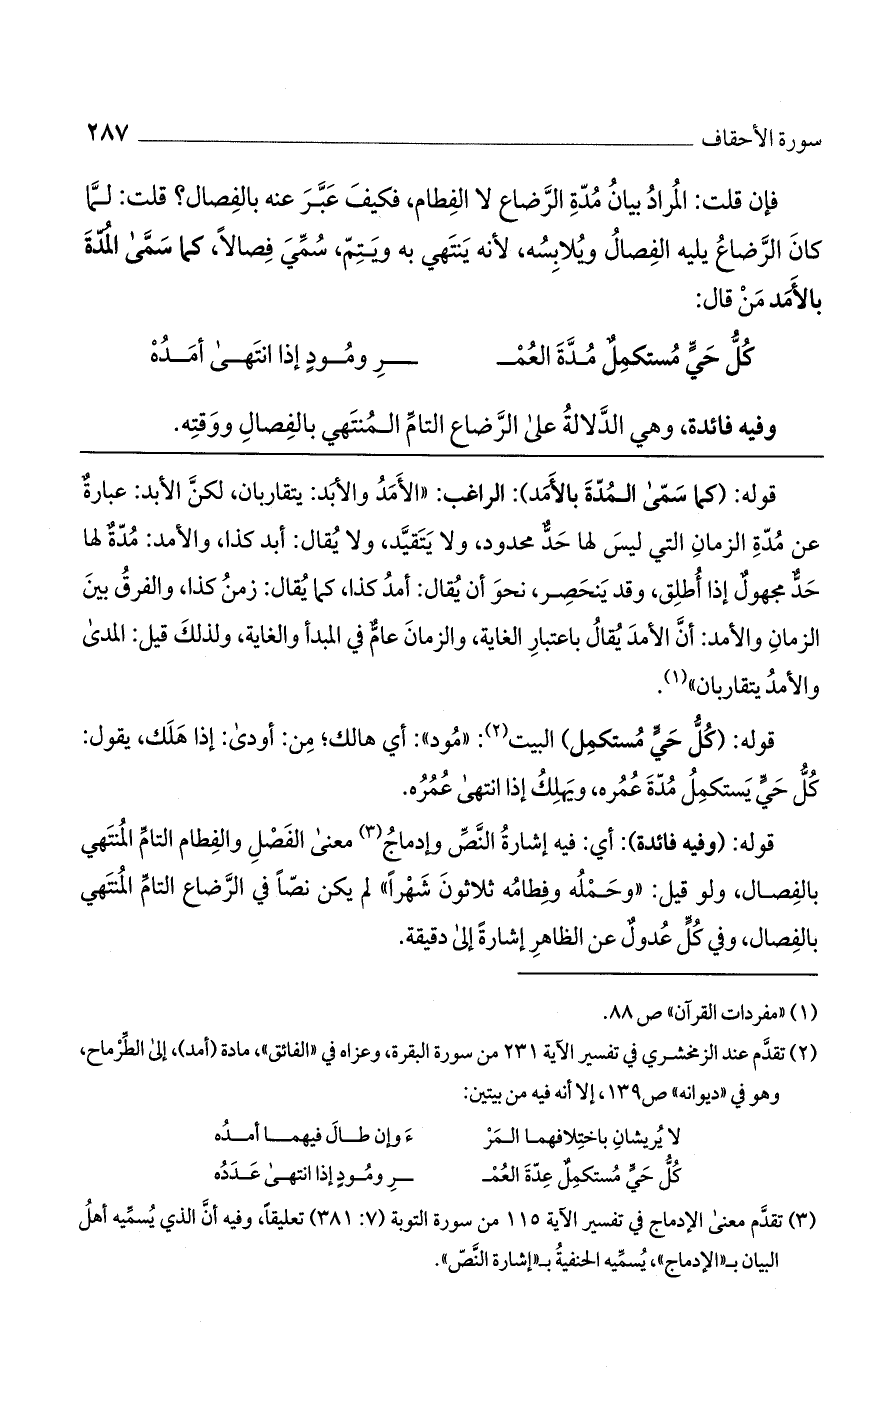 سورة الأحقاف ٢٨٧
فإن قلت: المُرادُ بيانُ مُدّةِ الرَّضاعِ لا الفِطام، فكيفَ عَبَّرَ عنه بالفِصال؟ قلت: لـمَّا
كانَ الرَّضاعُ يليه الفِصالُ ويُلابِسُه، لأنه يَنتَهي به ويَـتِـمّ، سُمِّيَ فِصالاً، كما سَمَّىٰ المُدّةَ
بالأَمَد مَنْ قال:
كُلُّ حَيٍّ مُستكمِلٌ مُـدَّةَ العُمْـ ـــرِ ومُـودٍ إذا انتَهـىٰ أمَـدُهْ
وفيه فائدة، وهي الدَّلالةُ علىٰ الرَّضاع التامِّ المُنتَهي بالفِصالِ ووَقتِه.
قوله: (كما سَمّىٰ المُدّةَ بالأَمَد): الراغب: «الأَمَدُ والأبَد: يتقاربان، لكنَّ الأبد: عبارةٌ
عن مُدّةِ الزمانِ التي ليسَ لها حَدٌّ محدود، ولا يَتَقيَّد، ولا يُقال: أبد كذا، والأمد: مُدّةٌ لها
حَدٌّ مجهولٌ إذا أُطلِق، وقد يَنحَصِـر، نحوَ أن يُقال: أمدُ كذا، كما يُقال: زمنُ كذا، والفرقُ بينَ
الزمانِ والأمد: أنَّ الأمدَ يُقالُ باعتبارِ الغاية، والزمانَ عامٌّ في المبدأ والغاية، ولذلكَ قيل: المدىٰ
والأمدُ يتقاربان»(١).
قوله: (كُلُّ حَيٍّ مُستكمِل) البيت(٢): «مُود»: أي هالك؛ مِن: أودىٰ: إذا هَلَك، يقول:
كُلُّ حَيٍّ يَستكمِلُ مُدّةَ عُمُره، ويَهلِكُ إذا انتهىٰ عُمُرُه.
قوله: (وفيه فائدة): أي: فيه إشارةُ النَّصِّ وإدماجُ(٣) معنىٰ الفَصْلِ والفِطام التامِّ المُنتَهي
بالفِصـال، ولو قيل: «وحَـمْلُه وفِطامُه ثلاثونَ شَهْراً» لم يكن نصّاً في الرَّضاع التامِّ المُنتَهي
بالفِصال، وفي كُلِّ عُدولٍ عن الظاهرِ إشارةً إلىٰ دقيقة.
(١) «مفردات القرآن» ص٨٨.
(٢) تقدَّم عند الزمخشري في تفسير الآية ٢٣١ من سورة البقرة، وعزاه في «الفائق»، مادة (أمد)، إلىٰ الطِّرْماح،
وهو في «ديوانه» ص١٣٩، إلا أنه فيه من بيتين:
لا يُريشانِ باختِلافهمـا الـمَرْ ءَ وإن طـالَ فيهمــا أمـدُه
كُلُّ حَيٍّ مُستكمِلٌ عِدّةَ العُمْـ ـــرِ ومُـودٍ إذا انتهـىٰ عَـدَدُه
(٣) تقدَّم معنىٰ الإدماج في تفسير الآية ١١٥ من سورة التوبة (٧: ٣٨١) تعليقاً، وفيه أنَّ الذي يُسمِّيه أهلُ
البيان بـ«الإدماج»، يُسمِّيه الحنفيةُ بـ«إشارة النَّصّ».